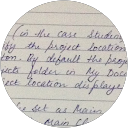 (in the case Studen
by the project location
on. By default the proj
ects folder in My Doc
ect Location displaye
Set as Main
Main Cl